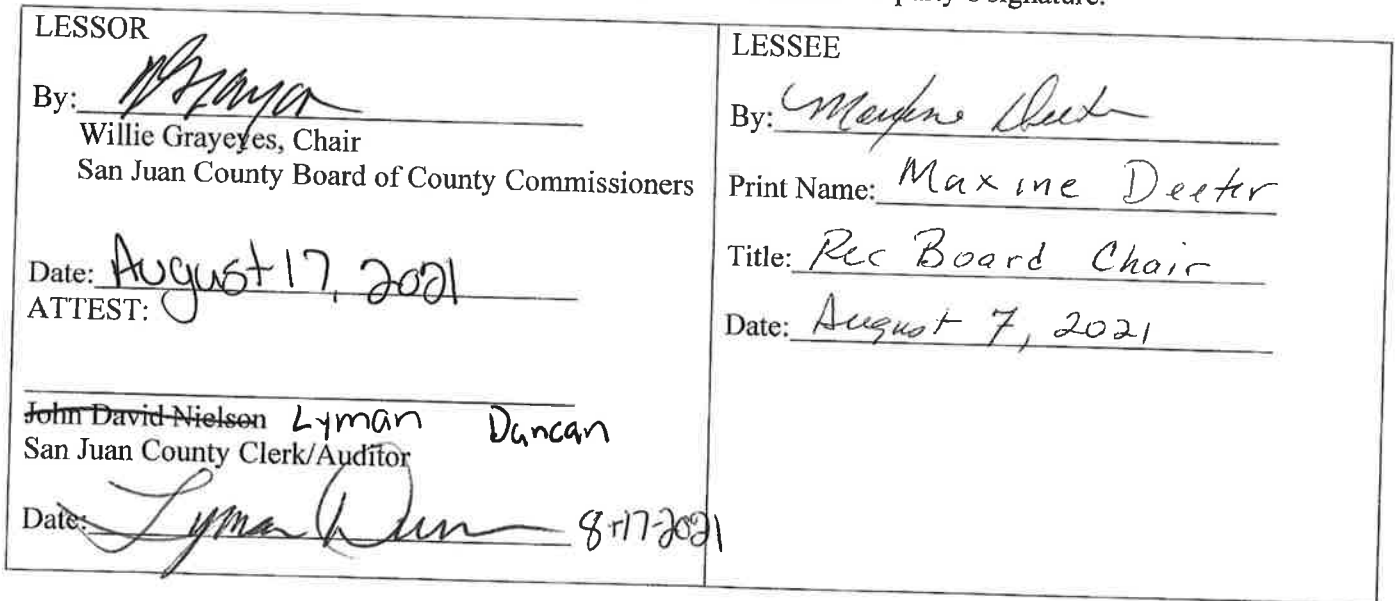 signature.
LESSOR
By:
Willie Grayeyes, Chair
San Juan County Board of County Commissioners
Date: August 17, 2021
ATTEST:
John David Nielson Lyman Duncan
San Juan County Clerk/Auditor
Date: Lyman Dun 8-17-2021
LESSEE
By: Maxine Deeter
Print Name: Maxine Deeter
Title: Rec Board Chair
Date: August 7, 2021